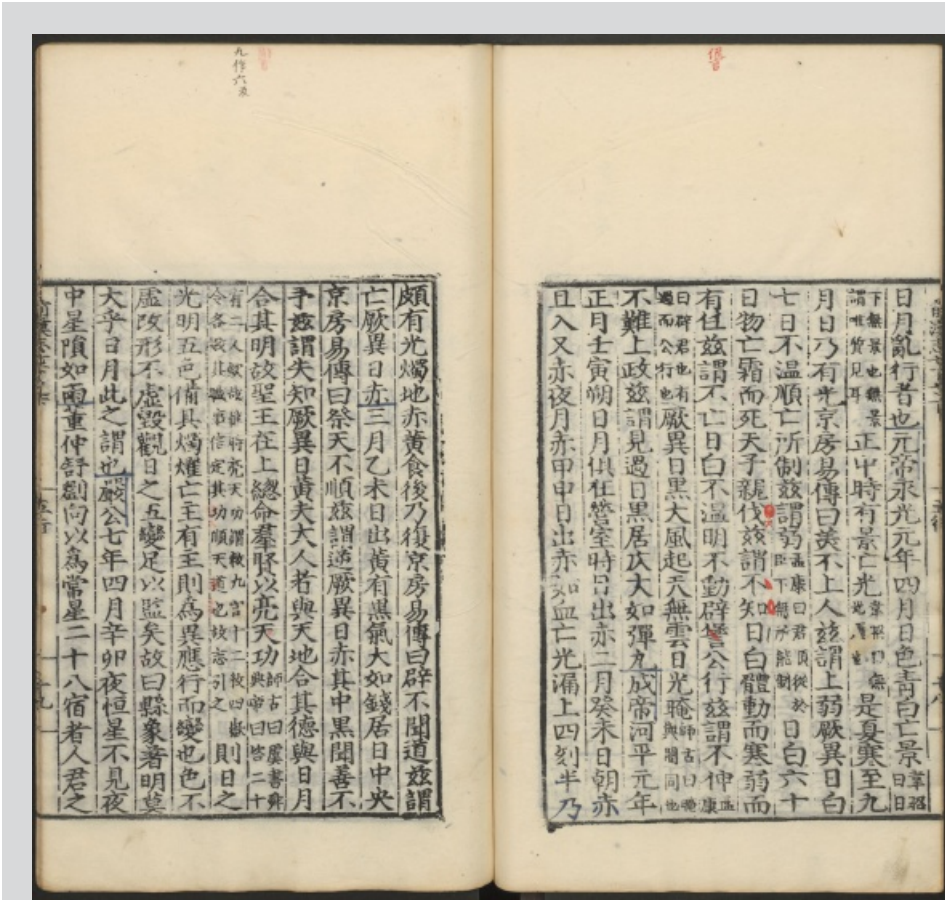 日月亂行者也元帝永光元年四月日色青白亡景韋昭曰日
下無景也無景謂唯質見耳正中時有景亡光韋昭曰無光耀也是夏寒至九
月日乃有光京房易傳曰美不上人茲謂上弱厥異日白
七日不溫順亡所制茲謂弱孟康曰君順從於臣下無所能制日白六十
日物亡霜而死天子親伐茲謂不知日白體動而寒弱而
有任茲謂不亡日白不溫明不動辟諐公行茲謂不伸孟康
曰辟君也有過而公行也厥異日黑大風起天無雲日光晻師古曰晻與闇同也
不難上政茲謂見過日黑居仄大如彈丸成帝河平元年
正月壬寅朔日月俱在營室時日出赤二月癸未日朝赤
且入又赤夜月赤甲申日出赤如血亡光漏上四刻半乃
頗有光燭地赤黃食後乃復京房易傳曰辟不聞道茲謂
亡厥異日赤三月乙未日出黃有黑氣大如錢居日中央
京房易傳曰祭天不順茲謂逆厥異日赤其中黑聞善不
予茲謂失知厥異日黃夫大人者與天地合其德與日月
合其明故聖王在上總命羣賢以亮天功師古曰虞書舜典帝曰咨二十
有二人欽哉惟時亮天功謂敕九官十二牧四嶽令各敬其職事信定其功順天道也故志引之則日之
光明五色備具燭耀亡主有主則為異應行而變也色不
虛改形不虛毀觀日之五變足以監矣故曰縣象著明莫
大乎日月此之謂也嚴公七年四月辛卯夜恒星不見夜
中星隕如雨董仲舒劉向以為常星二十八宿者人君之
五行
五行
九作六